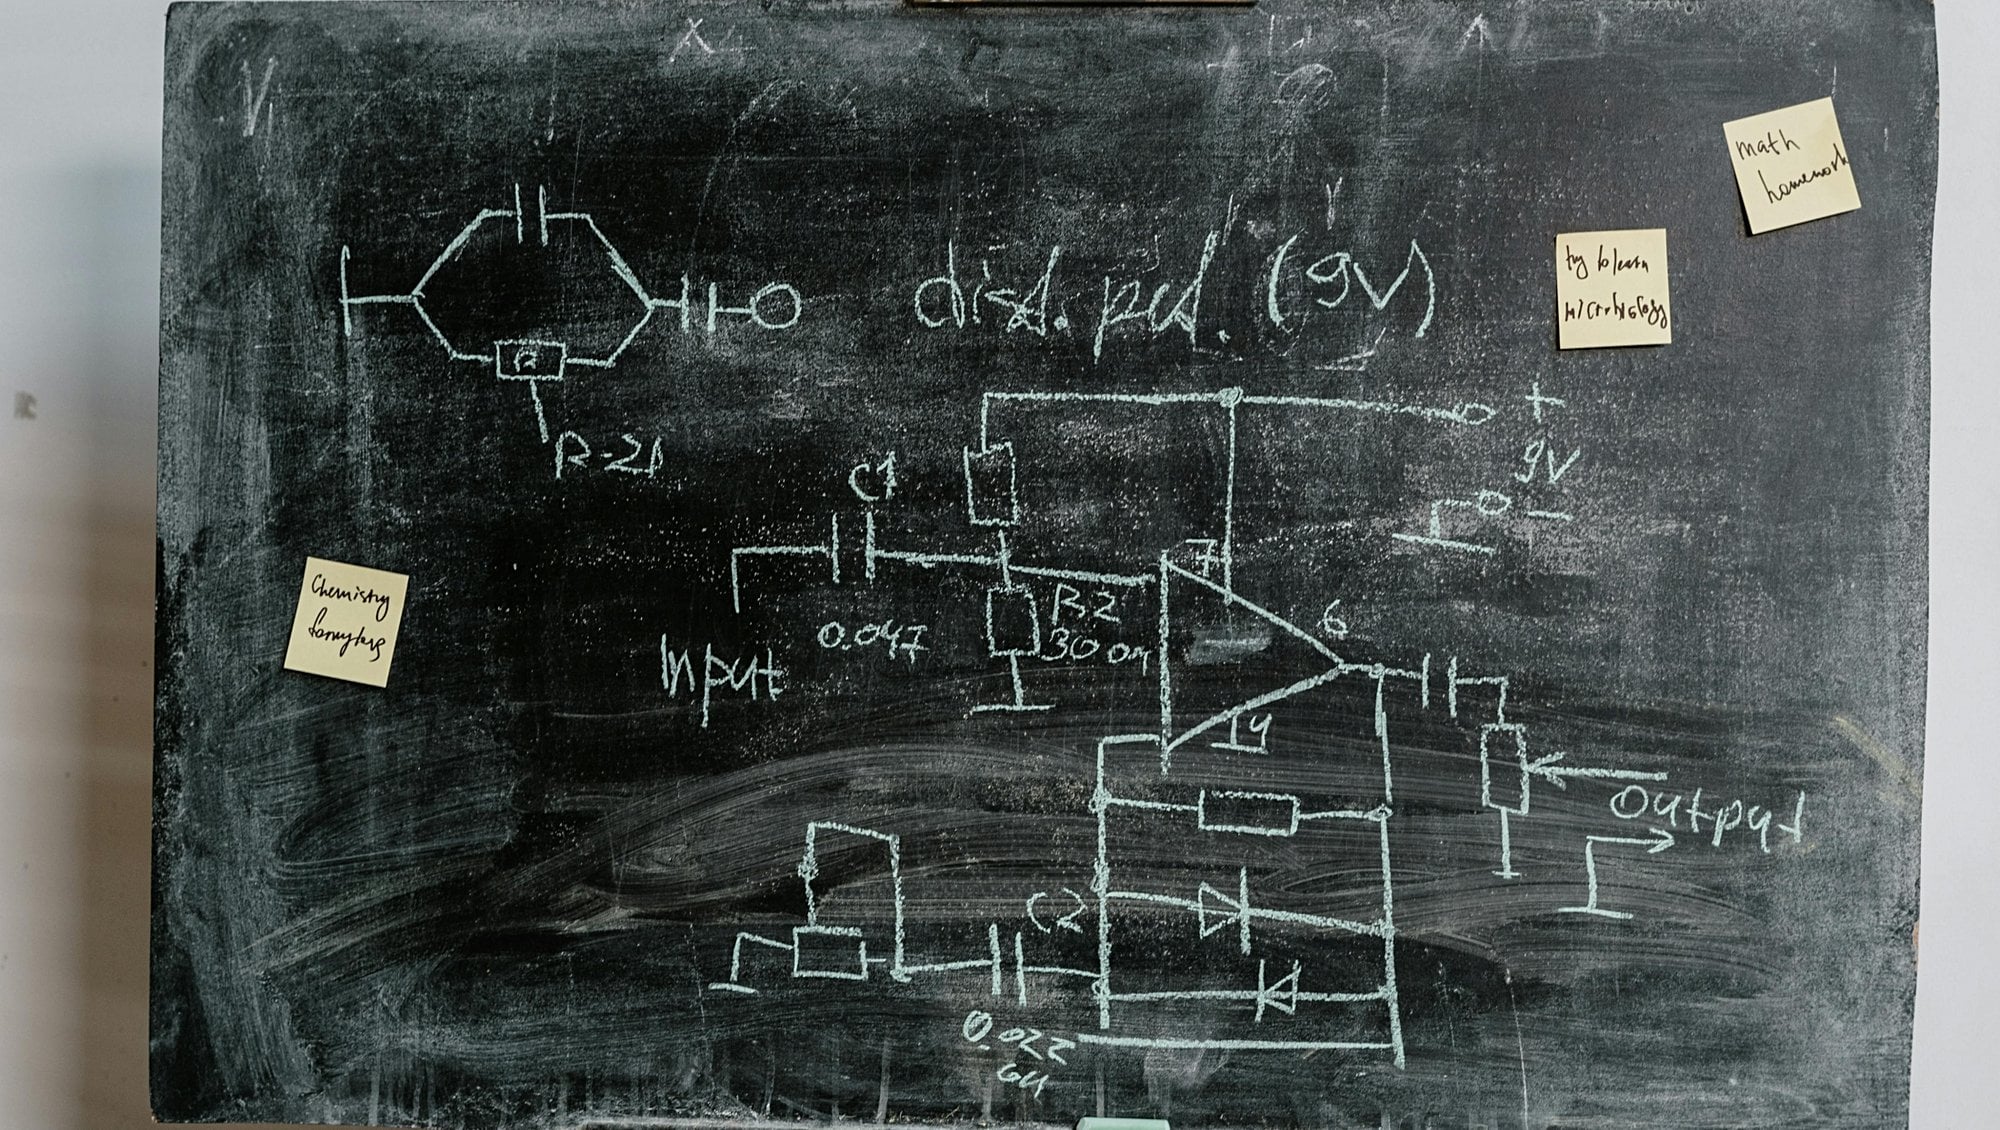 math
homework
try to learn
microbiology
dist. ped. (9V)
R
R-21
+
9V
C1
7
R2
0.047
30 om
6
Input
Chemistry
14
Output
C2
0.022